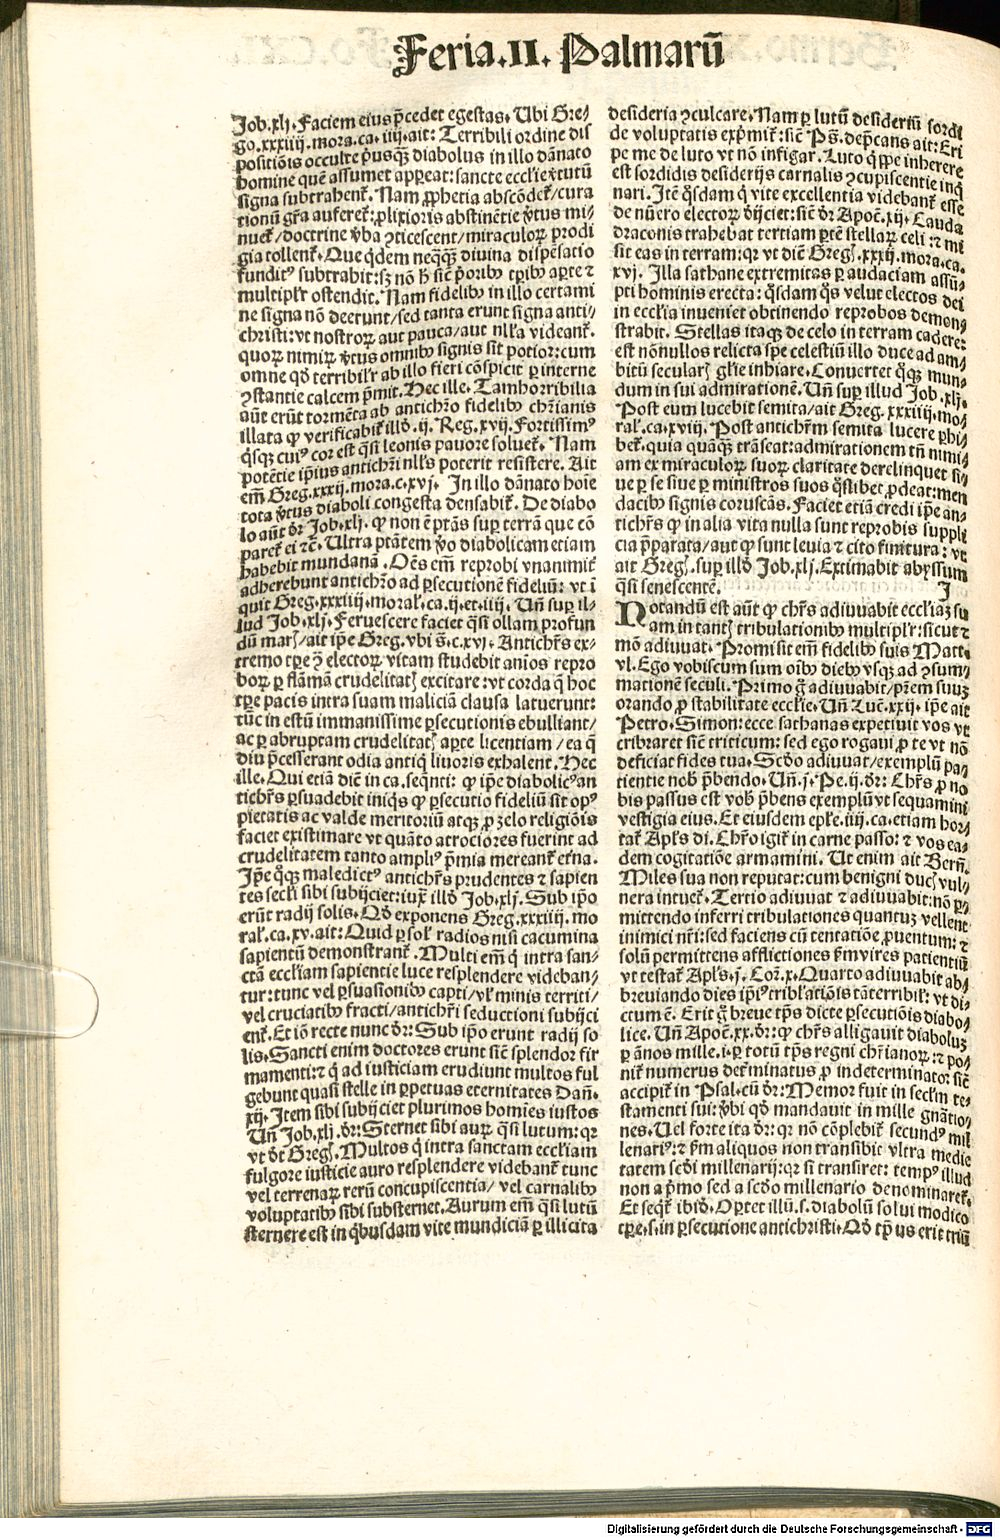 Feria.II. Palmarū
Job.xlj. Faciem eius p̄cedet egestas. Ubi Gre/
go.xxxiiij.mora.ca.iiij.ait: Terribili ordine dis
positiōis occulte p̄usq̄ȝ diabolus in illo dānato
homine quē assumet appeat: sancte ecclīe v̓tutū
signa subtrahent̄. Nam ꝓphetia abscōdet̄/cura
tionū gr̄a auferet̄: ꝓlixioris abstinētie v̓tus mi/
nuet̄/doctrine v̓ba ꝯticescent/miraculoꝝ prodi
gia tollent̄. Que q̇dem neqq̄ȝ diuina dispēsatio
funditꝰ subtrahit: sȝ nō h̄ sic̄ p̓oribꝰ tꝑibꝰ aꝑte ⁊
multipl̓r ostendit. Nam fidelibꝰ in illo certami
ne signa nō deerunt/sed tanta erunt signa anti/
christi: vt nostroꝝ aut pauca/aut nl̓la videant̄.
quoꝝ nimiꝝ v̓tus omnibꝰ signis fit potior: cum
omne qd̓ terribil̓r ab illo fieri cōspicit ꝑ interne
ꝯstantie calcem p̓mit. Hec ille. Tam horribilia
aūt erūt tormēta ab antichr̄o fidelibꝰ chr̄ianis
illata ꝙ verificabit̄ illd̓.ij. Reg.xvij. Fortissimꝰ
q̇sqȝ cuiꝰ cor est q̄si leonis pauore soluet̄. Nam
potētie ip̄ius antichr̄i nl̓ls poterit resistere. Ait
em̄ Greg.xxxij.mora.c.xvj. In illo dānato hoīe
tota v̓tus diaboli congesta densabit̄. De diabo
lo aūt dr̄ Job.xlj. ꝙ non ē ptās suꝑ terrā que cō
paret̄ ei ⁊c̄. Ultra ptātem v̓o diabolicam etiam
habebit mundanā. Oēs em̄ reprobi vnanimit̄
adherebunt antichr̄o ad ꝑsecutionē fideliū: vt ī
quit Greg.xxxiiij.moral̓.ca.ij.et.iiij. Un̄ suꝑ il/
lud Job.xlj. Feruescere faciet q̄si ollam profun
dū maris/ait ip̄e Greg. vbi s̄.c.xvj. Antichr̄s ex/
tremo tꝑe ꝯ̄ electoꝝ vitam studebit anīos repro
boꝝ ꝑ flāmā crudelitatis excitare: vt corda q̄ hoc
tꝑe pacis intra suam maliciā clausa latuerunt:
tūc in estū immanissime ꝑsecutionis ebulliant/
ac ꝑ abruptam crudelitatis aꝑte licentiam/ea q̄
diu p̄cesserant odia antiq̇ liuoris exhalent. Hec
ille. Qui etiā dic̄m in ca.seq̄nti: ꝙ ip̄e diabolicꝰ an
tichr̄s ꝑsuadebit iniq̇s ꝙ ꝑsecutio fideliū sit opꝰ
pietatis ac valde meritoriū atqȝ ꝓ zelo religiōis
faciet existimare vt quāto atrociores fuerint ad
crudelitatem tanto ampliꝰ p̄mia mereant̄ et̓na.
Ip̄e q̊qȝ maledictꝰ antichr̄s prudentes ⁊ sapien
tes secl̓i sibi subijciet: iux̄ illd̓ Job.xlj. Sub ip̄o
erūt radij solis. Qd̓ exponens Greg.xxxiiij.mo
ral̓.ca.xv.ait: Quid ꝑ sol̓ radios nisi cacumina
sapientū demonstrant̄. Multi em̄ q̇ intra san/
ctā eccl̓iam sapientie luce resplendere videban/
tur: tunc vel ꝑsuasionibꝰ capti/vl̓ minis territi/
vel cruciatibꝰ fracti/antichr̄i seductioni subijci
ent̄. Et iō recte nunc dr̄: Sub ip̄o erunt radij so
lis. Sancti enim doctores erunt sic̄ splendor fir
mamenti: ⁊ q̇ ad iusticiam erudiunt multos ful
gebunt quasi stelle in ꝑpetuas eternitates Dan̄.
xij. Item sibi subijciet plurimos homīes iustos
Un̄ Job.xlj.dr̄: Sternet sibi auꝝ q̄si lutum: qr
vt dic̄ Greg̓. Multos q̇ intra sanctam eccl̓iam
fulgore iusticie auro resplendere videbant̄ tunc
vel terrenaꝝ rerū concupiscentia/vel carnalibꝰ
voluptatibꝰ sibi substernet. Aurum em̄ q̄si lutū
sternere est in q̇busdam vite mundiciā ꝑ illicita
desideria ꝯculcare. Nam ꝑ lutū desideriū sordi
de voluptatis exp̓mit̄: sic̄ Ps̄. dep̄cans ait: Eri
pe me de luto vt nō infigar. Luto q̇ppe inherere
est sordidis desiderijs carnalis ꝯcupiscentie inq̇
nari. Itē q̇sdam q̇ vite excellentia videbant̄ esse
de nūero electoꝝ dijciet: sic̄ dr̄ Apoc̄.xij. Cauda
draconis trahebat tertiam ꝑtē stellaꝝ celi: ⁊ mi
sit eas in terram: qr vt dic̄ Greg̓.xxxij.mora.ca.
xvj. Illa sathane extremitas ꝑ audaciam assū/
pti hominis erecta: q̇sdam q̇s velut electos dei
in eccl̓ia inueniet obtinendo reprobos demon/
strabit. Stellas itaqȝ de celo in terram cadere:
est nōnullos relicta spe celestiū illo duce ad am/
bitū secularis gl̓ie inhiare. Conuertet q̊qȝ mun/
dum in sui admirationē. Un̄ suꝑ illud Job.xlj.
Post eum lucebit semita/ait Greg.xxxiiij.mo/
ral̓.ca.xviij. Post antichr̄m semita lucere ꝑhi/
bet̄. quia quāq̄ȝ trāseat: admirationem tn̄ nimi/
am ex miraculoꝝ suoꝝ claritate derelinquet si/
ue ꝑ se siue ꝑ ministros suos q̊slibet ꝓdeat: men
dacibꝰ signis coruscās. Faciet etiā credi ip̄e an/
tichr̄s ꝙ in alia vita nulla sunt reprobis suppli
cia p̄parata/aut ꝙ sunt leuia ⁊ cito finitura: vt
ait Greg̓. suꝑ illd̓ Job.xlj. Extimabit abyssum
q̄si senescentē. I
Notandū est aūt ꝙ chr̄s adiuuabit eccl̓iaȝ su
am in tantis tribulationibꝰ multipl̓r: sicut ⁊
mō adiuuat. Promisit em̄ fidelibꝰ suis Matt.
vl. Ego vobiscum sum oībꝰ diebꝰ vsqȝ ad ꝯsum/
mationē seculi. Primo g̊ adiuuabit/pr̄em suuȝ
orando ꝓ stabilitate eccl̓ie. Un̄ Luc̄.xxij. ip̄e ait
Petro. Simon: ecce sathanas expetiuit vos vt
cribraret sic̄ triticum: sed ego rogaui ꝓ te vt nō
deficiat fides tua. Scd̓o adiuuat/exemplū pa/
tientie nob̓ p̄bendo. Un̄.j. Pe.ij.dr̄: Chr̄s ꝓ no
bis passus est vob̓ p̄bens exemplū vt sequamini
vestigia eius. Et eiusdem epl̓e.iiij.ca.etiam hor/
tat̄ Apl̓s di. Chr̄o igit̄ in carne passo: ⁊ vos ea/
dem cogitatiōe armamini. Ut enim ait Bern̄.
Miles sua non reputat: cum benigni ducis vul/
nera intuet̄. Tertio adiuuat ⁊ adiuuabit: nō ꝑ/
mittendo inferri tribulationes quantuȝ vellent
inimici nr̄i: sed faciens cū tentatiōe ꝓuentum: ⁊
solū permittens afflictiones s̄m vires patientiū
vt testat̄ Apl̓s.j. Cor̄.x. Quarto adiuuabit ab/
breuiando dies ip̄iꝰ tribl̓atiōis tā terribil̓: vt di/
ctum ē. Erit g̊ breue tp̄s dicte ꝑsecutiōis diabo/
lice. Un̄ Apoc̄.xx.dr̄: ꝙ chr̄s alligauit diaboluȝ
ꝑ ānos mille.i.ꝑ totū tp̄s regni chr̄ianoꝝ: ⁊ po/
nit̄ numerus det̓minatus ꝓ indeterminato: sic̄
accipit̄ in Psal. cū dr̄: Memor fuit in secl̓m te/
stamenti sui: v̓bi qd̓ mandauit in mille gnātio/
nes. Uel forte ita dr̄: qr nō cōplebit̄ secundꝰ mil
lenariꝰ: ⁊ s̄m aliquos non transibit vltra medie
tatem scd̓i millenarij: qr si transiret: tempꝰ illud
non a p̓mo sed a scd̓o millenario denominaret̄.
Et seqt̄ ibid̓. Oꝑtet illū.s.diabolū solui modico
tꝑe.s.in ꝑsecutione antichristi. Qd̓ tp̄us erit triū
Digitalisierung gefördert durch die Deutsche Forschungsgemeinschaft - DFG